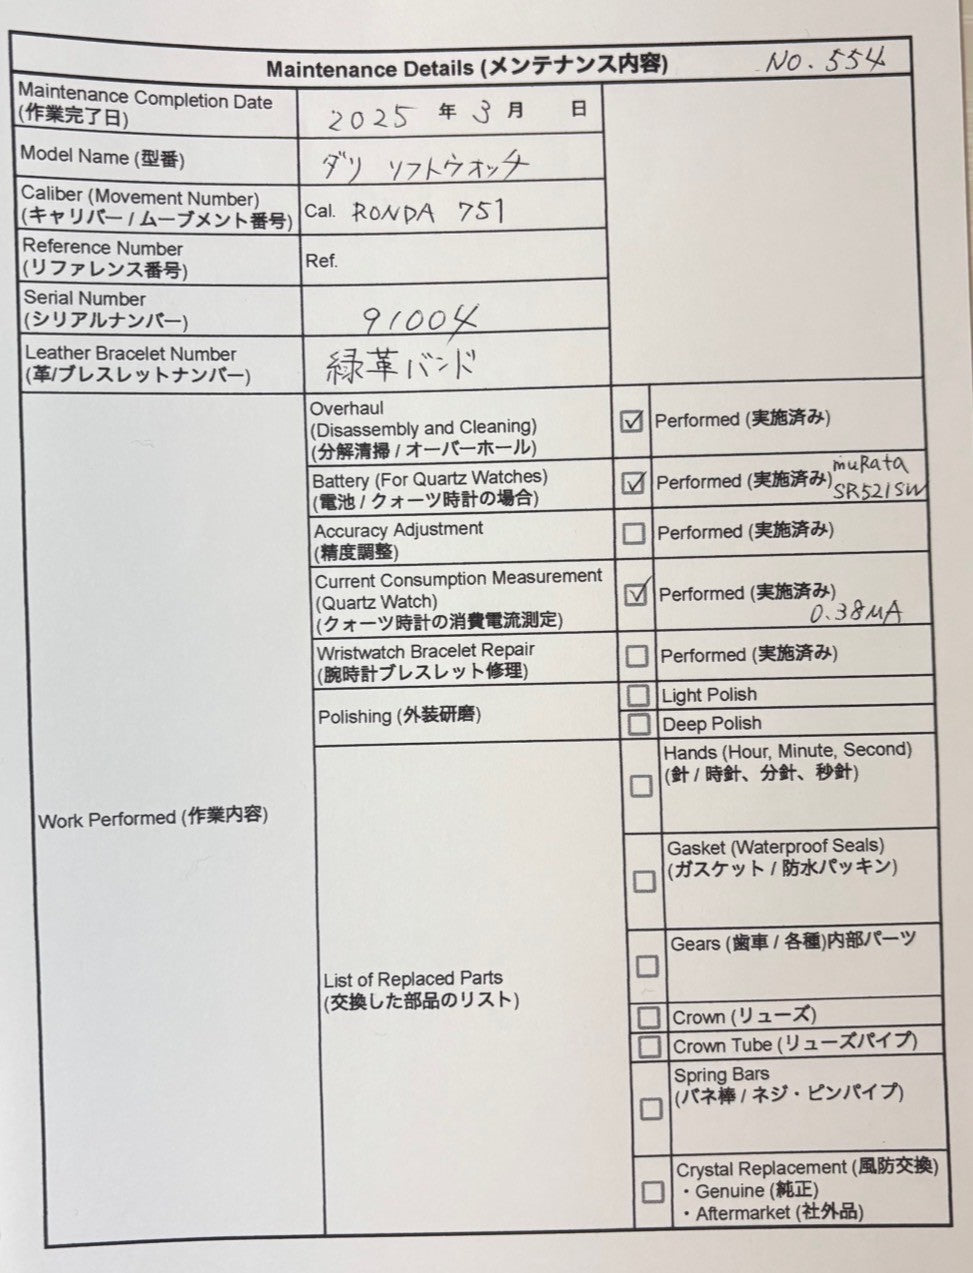 Maintenance Details (メンテナンス内容) NO. 554
Maintenance Completion Date
(作業完了日)
2025 年 3 月 日
Model Name (型番)
ダリ ソフトウォッチ
Caliber (Movement Number)
(キャリバー / ムーブメント番号)
Cal. RONDA 751
Reference Number
(リファレンス番号)
Ref.
Serial Number
(シリアルナンバー)
91004
Leather Bracelet Number
(革/ブレスレットナンバー)
緑革バンド
Work Performed (作業内容)
Overhaul
(Disassembly and Cleaning)
(分解清掃 / オーバーホール)
Performed (実施済み)
Battery (For Quartz Watches)
(電池 / クォーツ時計の場合)
Performed (実施済み)
muRata
SR521SW
Accuracy Adjustment
(精度調整)
Performed (実施済み)
Current Consumption Measurement
(Quartz Watch)
(クォーツ時計の消費電流測定)
Performed (実施済み)
0.38μA
Wristwatch Bracelet Repair
(腕時計ブレスレット修理)
Performed (実施済み)
Polishing (外装研磨)
Light Polish
Deep Polish
List of Replaced Parts
(交換した部品のリスト)
Hands (Hour, Minute, Second)
(針 / 時針、分針、秒針)
Gasket (Waterproof Seals)
(ガスケット / 防水パッキン)
Gears (歯車 / 各種)内部パーツ
Crown (リューズ)
Crown Tube (リューズパイプ)
Spring Bars
(バネ棒 / ネジ・ピンパイプ)
Crystal Replacement (風防交換)
・Genuine (純正)
・Aftermarket (社外品)